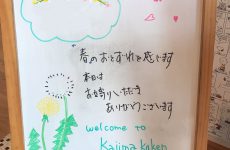 春のおとずれを感じます
本日は
お越しいただき
ありがとうございます
welcome to
Kajima Koken